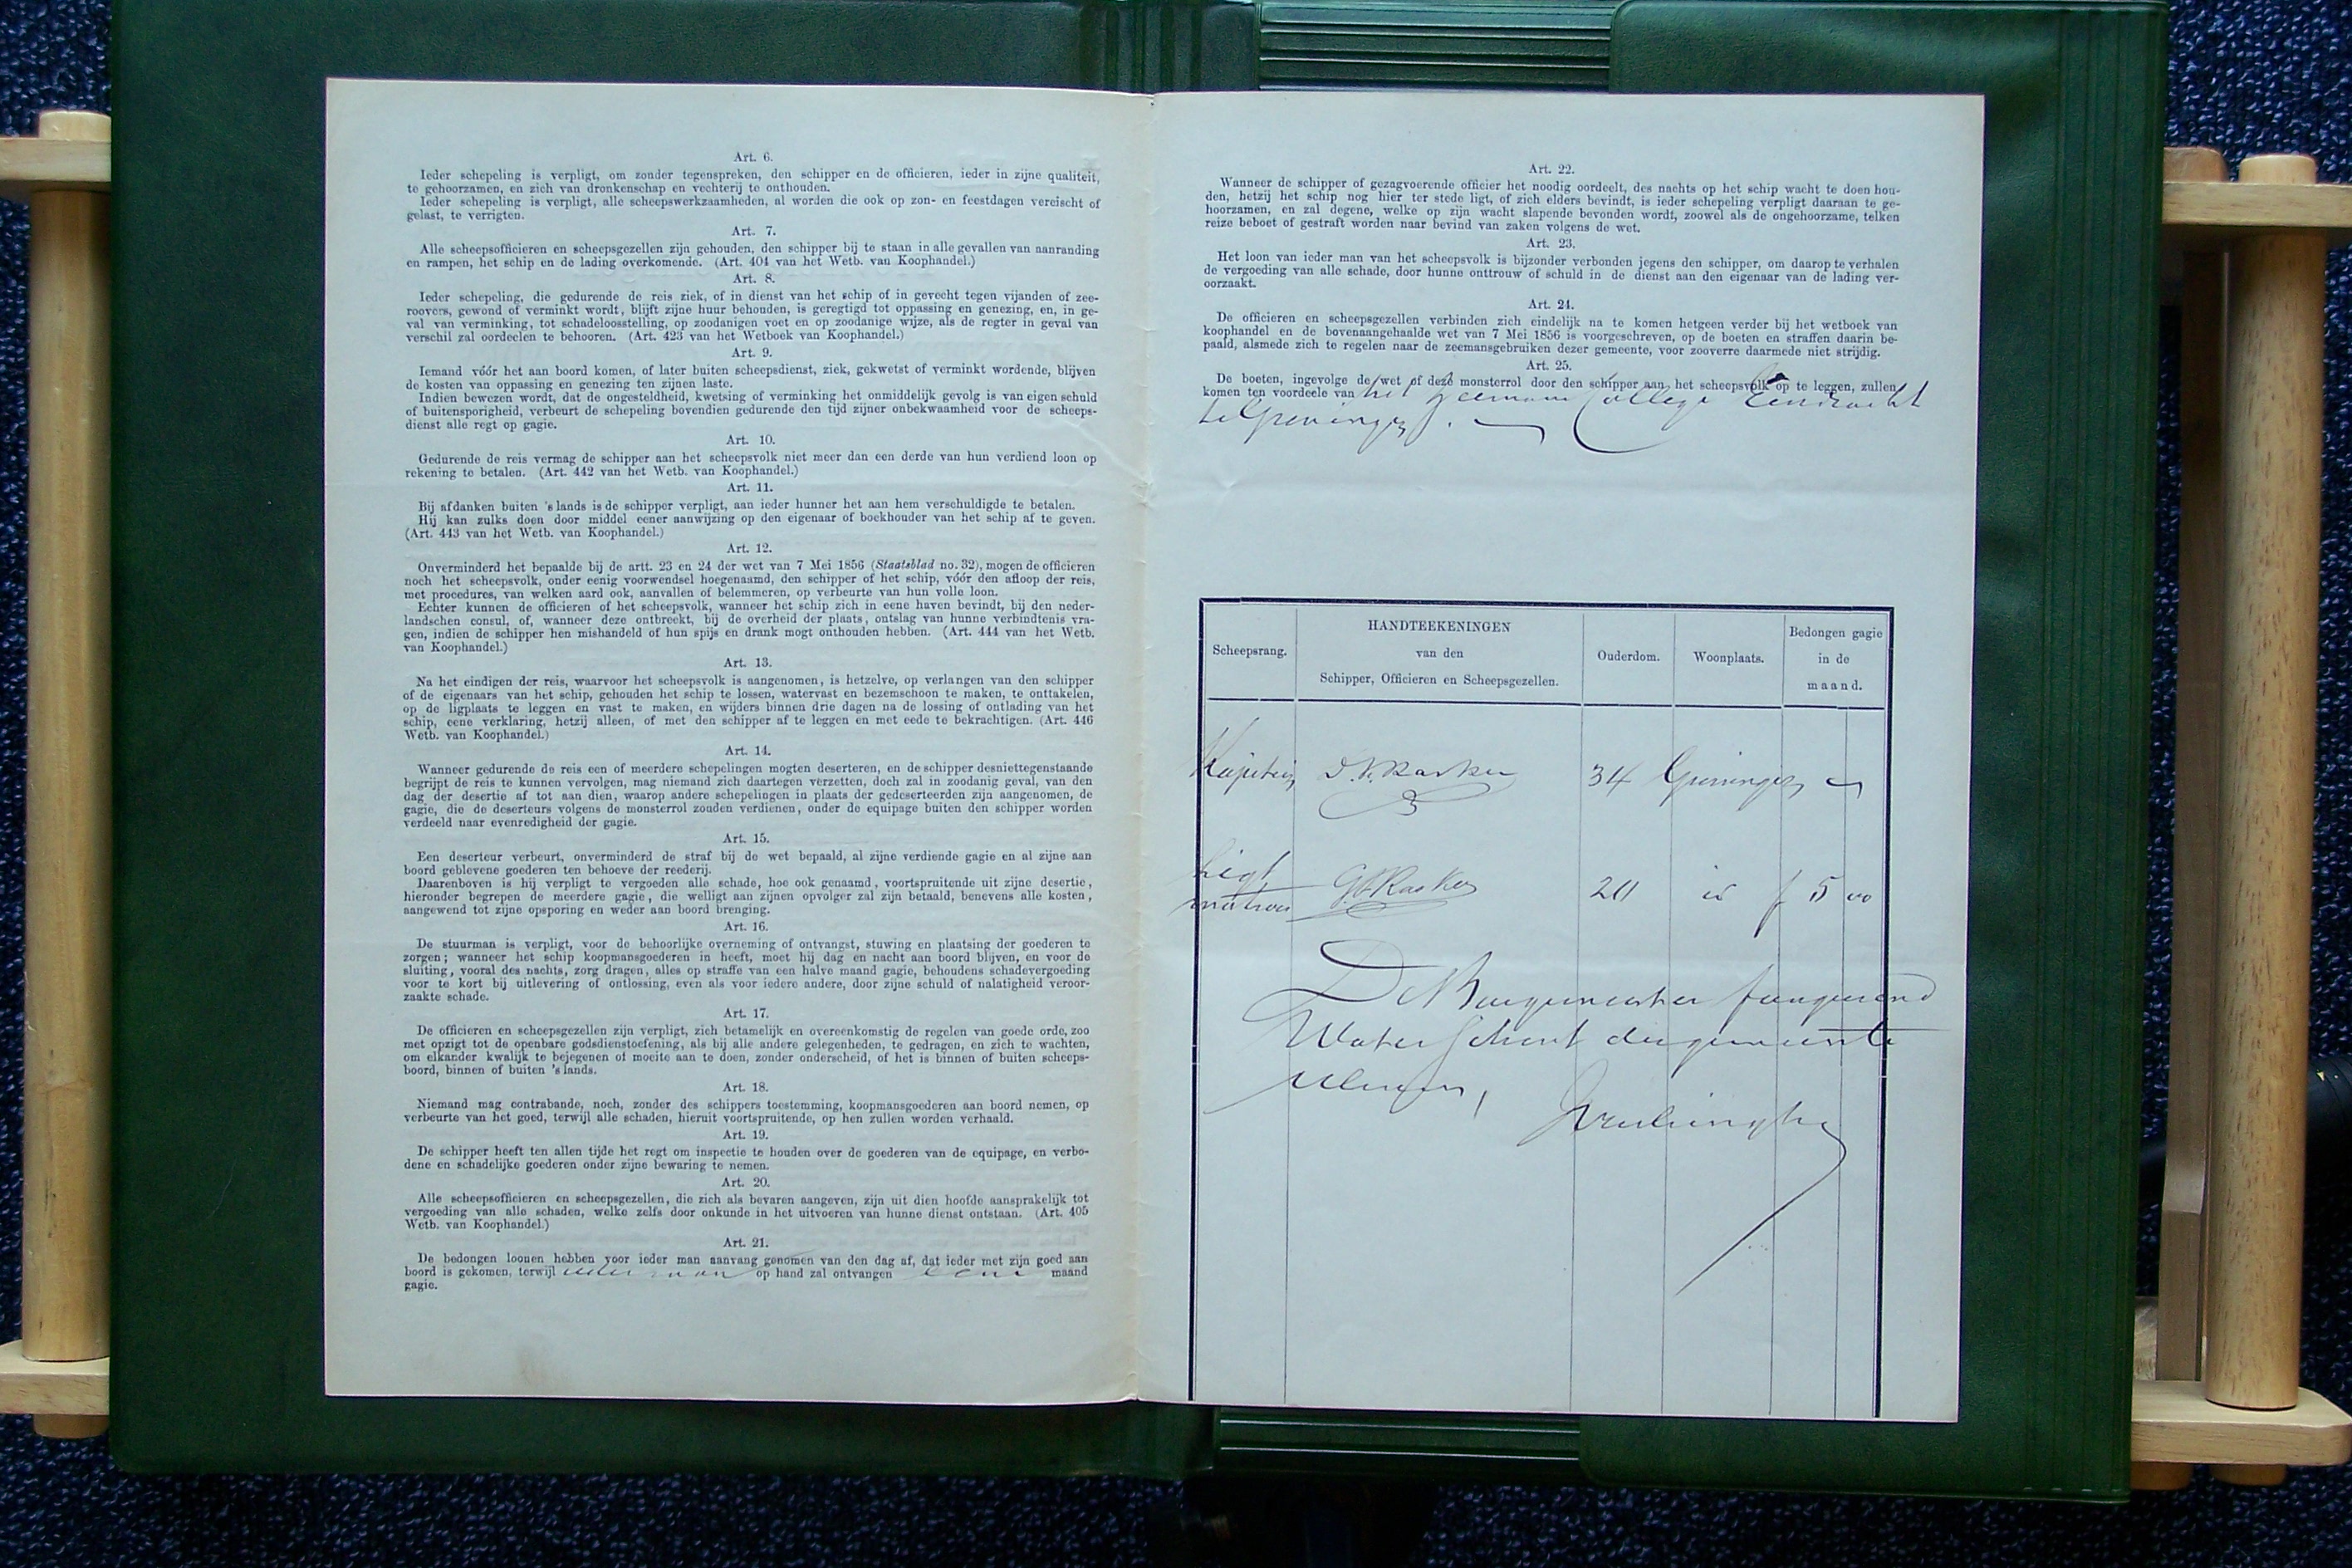 Art. 6.
Ieder schepeling is verpligt, om zonder tegenspreken, den schipper en de officieren, ieder in zijne qualiteit,
te gehoorzamen, en zich van dronkenschap en vechterij te onthouden.
Ieder schepeling is verpligt, alle scheepswerkzaamheden, al worden die ook op zon- en feestdagen vereischt of
gelast, te verrigten.
Art. 7.
Alle scheepsofficieren en scheepsgezellen zijn gehouden, den schipper bij te staan in alle gevallen van aanranding
en rampen, het schip en de lading overkomende. (Art. 404 van het Wetb. van Koophandel.)
Art. 8.
Ieder schepeling, die gedurende de reis ziek, of in dienst van het schip of in gevecht tegen vijanden of zee-
roovers, gewond of verminkt wordt, blijft zijne huur behouden, is geregtigd tot oppassing en genezing, en, in ge-
val van verminking, tot schadeloosstelling, op zoodanigen voet en op zoodanige wijze, als de regter in geval van
verschil zal oordeelen te behooren. (Art. 423 van het Wetboek van Koophandel.)
Art. 9.
Iemand vóór het aan boord komen, of later buiten scheepsdienst, ziek, gekwetst of verminkt wordende, blijven
de kosten van oppassing en genezing ten zijnen laste.
Indien bewezen wordt, dat de ongesteldheid, kwetsing of verminking het onmiddelijk gevolg is van eigen schuld
of buitensporigheid, verbeurt de schepeling bovendien gedurende den tijd zijner onbekwaamheid voor de scheeps-
dienst alle regt op gagie.
Art. 10.
Gedurende de reis vermag de schipper aan het scheepsvolk niet meer dan een derde van hun verdiend loon op
rekening te betalen. (Art. 442 van het Wetb. van Koophandel.)
Art. 11.
Bij afdanken buiten 's lands is de schipper verpligt, aan ieder hunner het aan hem verschuldigde te betalen.
Hij kan zulks doen door middel eener aanwijzing op den eigenaar of boekhouder van het schip af te geven.
(Art. 443 van het Wetb. van Koophandel.)
Art. 12.
Onverminderd het bepaalde bij de artt. 23 en 24 der wet van 7 Mei 1856 (Staatsblad no. 32), mogen de officieren
noch het scheepsvolk, onder eenig voorwendsel hoegenaamd, den schipper of het schip, vóór den afloop der reis,
met procedures, van welken aard ook, aanvallen of belemmeren, op verbeurte van hun volle loon.
Echter kunnen de officieren of het scheepsvolk, wanneer het schip zich in eene haven bevindt, bij den neder-
landschen consul, of, wanneer deze ontbreekt, bij de overheid der plaats, ontslag van hunne verbindtenis vra-
gen, indien de schipper hen mishandeld of hun spijs en drank mogt onthouden hebben. (Art. 444 van het Wetb.
van Koophandel.)
Art. 13.
Na het eindigen der reis, waarvoor het scheepsvolk is aangenomen, is hetzelve, op verlangen van den schipper
of de eigenaars van het schip, gehouden het schip te lossen, watervast en bezemschoon te maken, te onttakelen,
op de ligplaats te leggen en vast te maken, en wijders binnen drie dagen na de lossing of ontlading van het
schip, eene verklaring, hetzij alleen, of met den schipper af te leggen en met eede te bekrachtigen. (Art. 446
Wetb. van Koophandel.)
Art. 14.
Wanneer gedurende de reis een of meerdere schepelingen mogten deserteren, en de schipper desniettegenstaande
begrijpt de reis te kunnen vervolgen, mag niemand zich daartegen verzetten, doch zal in zoodanig geval, van den
dag der desertie af tot aan dien, waarop andere schepelingen in plaats der gedeserteerden zijn aangenomen, de
gagie, die de deserteurs volgens de monsterrol zouden verdienen, onder de equipage buiten den schipper worden
verdeeld naar evenredigheid der gagie.
Art. 15.
Een deserteur verbeurt, onverminderd de straf bij de wet bepaald, al zijne verdiende gagie en al zijne aan
boord geblevene goederen ten behoeve der reederij.
Daarenboven is hij verpligt te vergoeden alle schade, hoe ook genaamd, voortspruitende uit zijne desertie,
hieronder begrepen de meerdere gagie, die welligt aan zijnen opvolger zal zijn betaald, benevens alle kosten,
aangewend tot zijne opsporing en weder aan boord brenging.
Art. 16.
De stuurman is verpligt, voor de behoorlijke overneming of ontvangst, stuwing en plaatsing der goederen te
zorgen; wanneer het schip koopmansgoederen in heeft, moet hij dag en nacht aan boord blijven, en voor de
sluiting, vooral des nachts, zorg dragen, alles op straffe van een halve maand gagie, behoudens schadevergoeding
voor te kort bij uitlevering of ontlossing, even als voor iedere andere, door zijne schuld of nalatigheid veroor-
zaakte schade.
Art. 17.
De officieren en scheepsgezellen zijn verpligt, zich betamelijk en overeenkomstig de regelen van goede orde, zoo
met opzigt tot de openbare godsdienstoefening, als bij alle andere gelegenheden, te gedragen, en zich te wachten,
om elkander kwalijk te bejegenen of moeite aan te doen, zonder onderscheid, of het is binnen of buiten scheeps-
boord, binnen of buiten 's lands.
Art. 18.
Niemand mag contrabande, noch, zonder des schippers toestemming, koopmansgoederen aan boord nemen, op
verbeurte van het goed, terwijl alle schaden, hieruit voortspruitende, op hen zullen worden verhaald.
Art. 19.
De schipper heeft ten allen tijde het regt om inspectie te houden over de goederen van de equipage, en verbo-
dene en schadelijke goederen onder zijne bewaring te nemen.
Art. 20.
Alle scheepsofficieren en scheepsgezellen, die zich als bevaren aangeven, zijn uit dien hoofde aansprakelijk tot
vergoeding van alle schaden, welke zelfs door onkunde in het uitvoeren van hunne dienst ontstaan. (Art. 405
Wetb. van Koophandel.)
Art. 21.
De bedongen loonen hebben voor ieder man aanvang genomen van den dag af, dat ieder met zijn goed aan
boord is gekomen, terwijl ieder man op hand zal ontvangen eene maand
gagie.
Art. 22.
Wanneer de schipper of gezagvoerende officier het noodig oordeelt, des nachts op het schip wacht te doen hou-
den, hetzij het schip nog hier ter stede ligt, of zich elders bevindt, is ieder schepeling verpligt daaraan te ge-
hoorzamen, en zal degene, welke op zijn wacht slapende bevonden wordt, zoowel als de ongehoorzame, telken
reize beboet of gestraft worden naar bevind van zaken volgens de wet.
Art. 23.
Het loon van ieder man van het scheepsvolk is bijzonder verbonden jegens den schipper, om daarop te verhalen
de vergoeding van alle schade, door hunne onttrouw of schuld in de dienst aan den eigenaar van de lading ver-
oorzaakt.
Art. 24.
De officieren en scheepsgezellen verbinden zich eindelijk na te komen hetgeen verder bij het wetboek van
koophandel en de bovenaangehaalde wet van 7 Mei 1856 is voorgeschreven, op de boeten en straffen daarin be-
paald, alsmede zich te regelen naar de zeemansgebruiken dezer gemeente, voor zooverre daarmede niet strijdig.
Art. 25.
De boeten, ingevolge de wet of deze monsterrol door den schipper aan het scheepsvolk op te leggen, zullen
komen ten voordeele van het Zeemans College Eendracht
te Groningen.
Scheepsrang.
HANDTEEKENINGEN
van den
Schipper, Officieren en Scheepsgezellen.
Ouderdom.
Woonplaats.
Bedongen gagie
in de
maand.
Kapitein 34 Groningen
Ligt
matroos 20 id f 5 00
De Burgemeester fungerend
Waterschout der gemeente